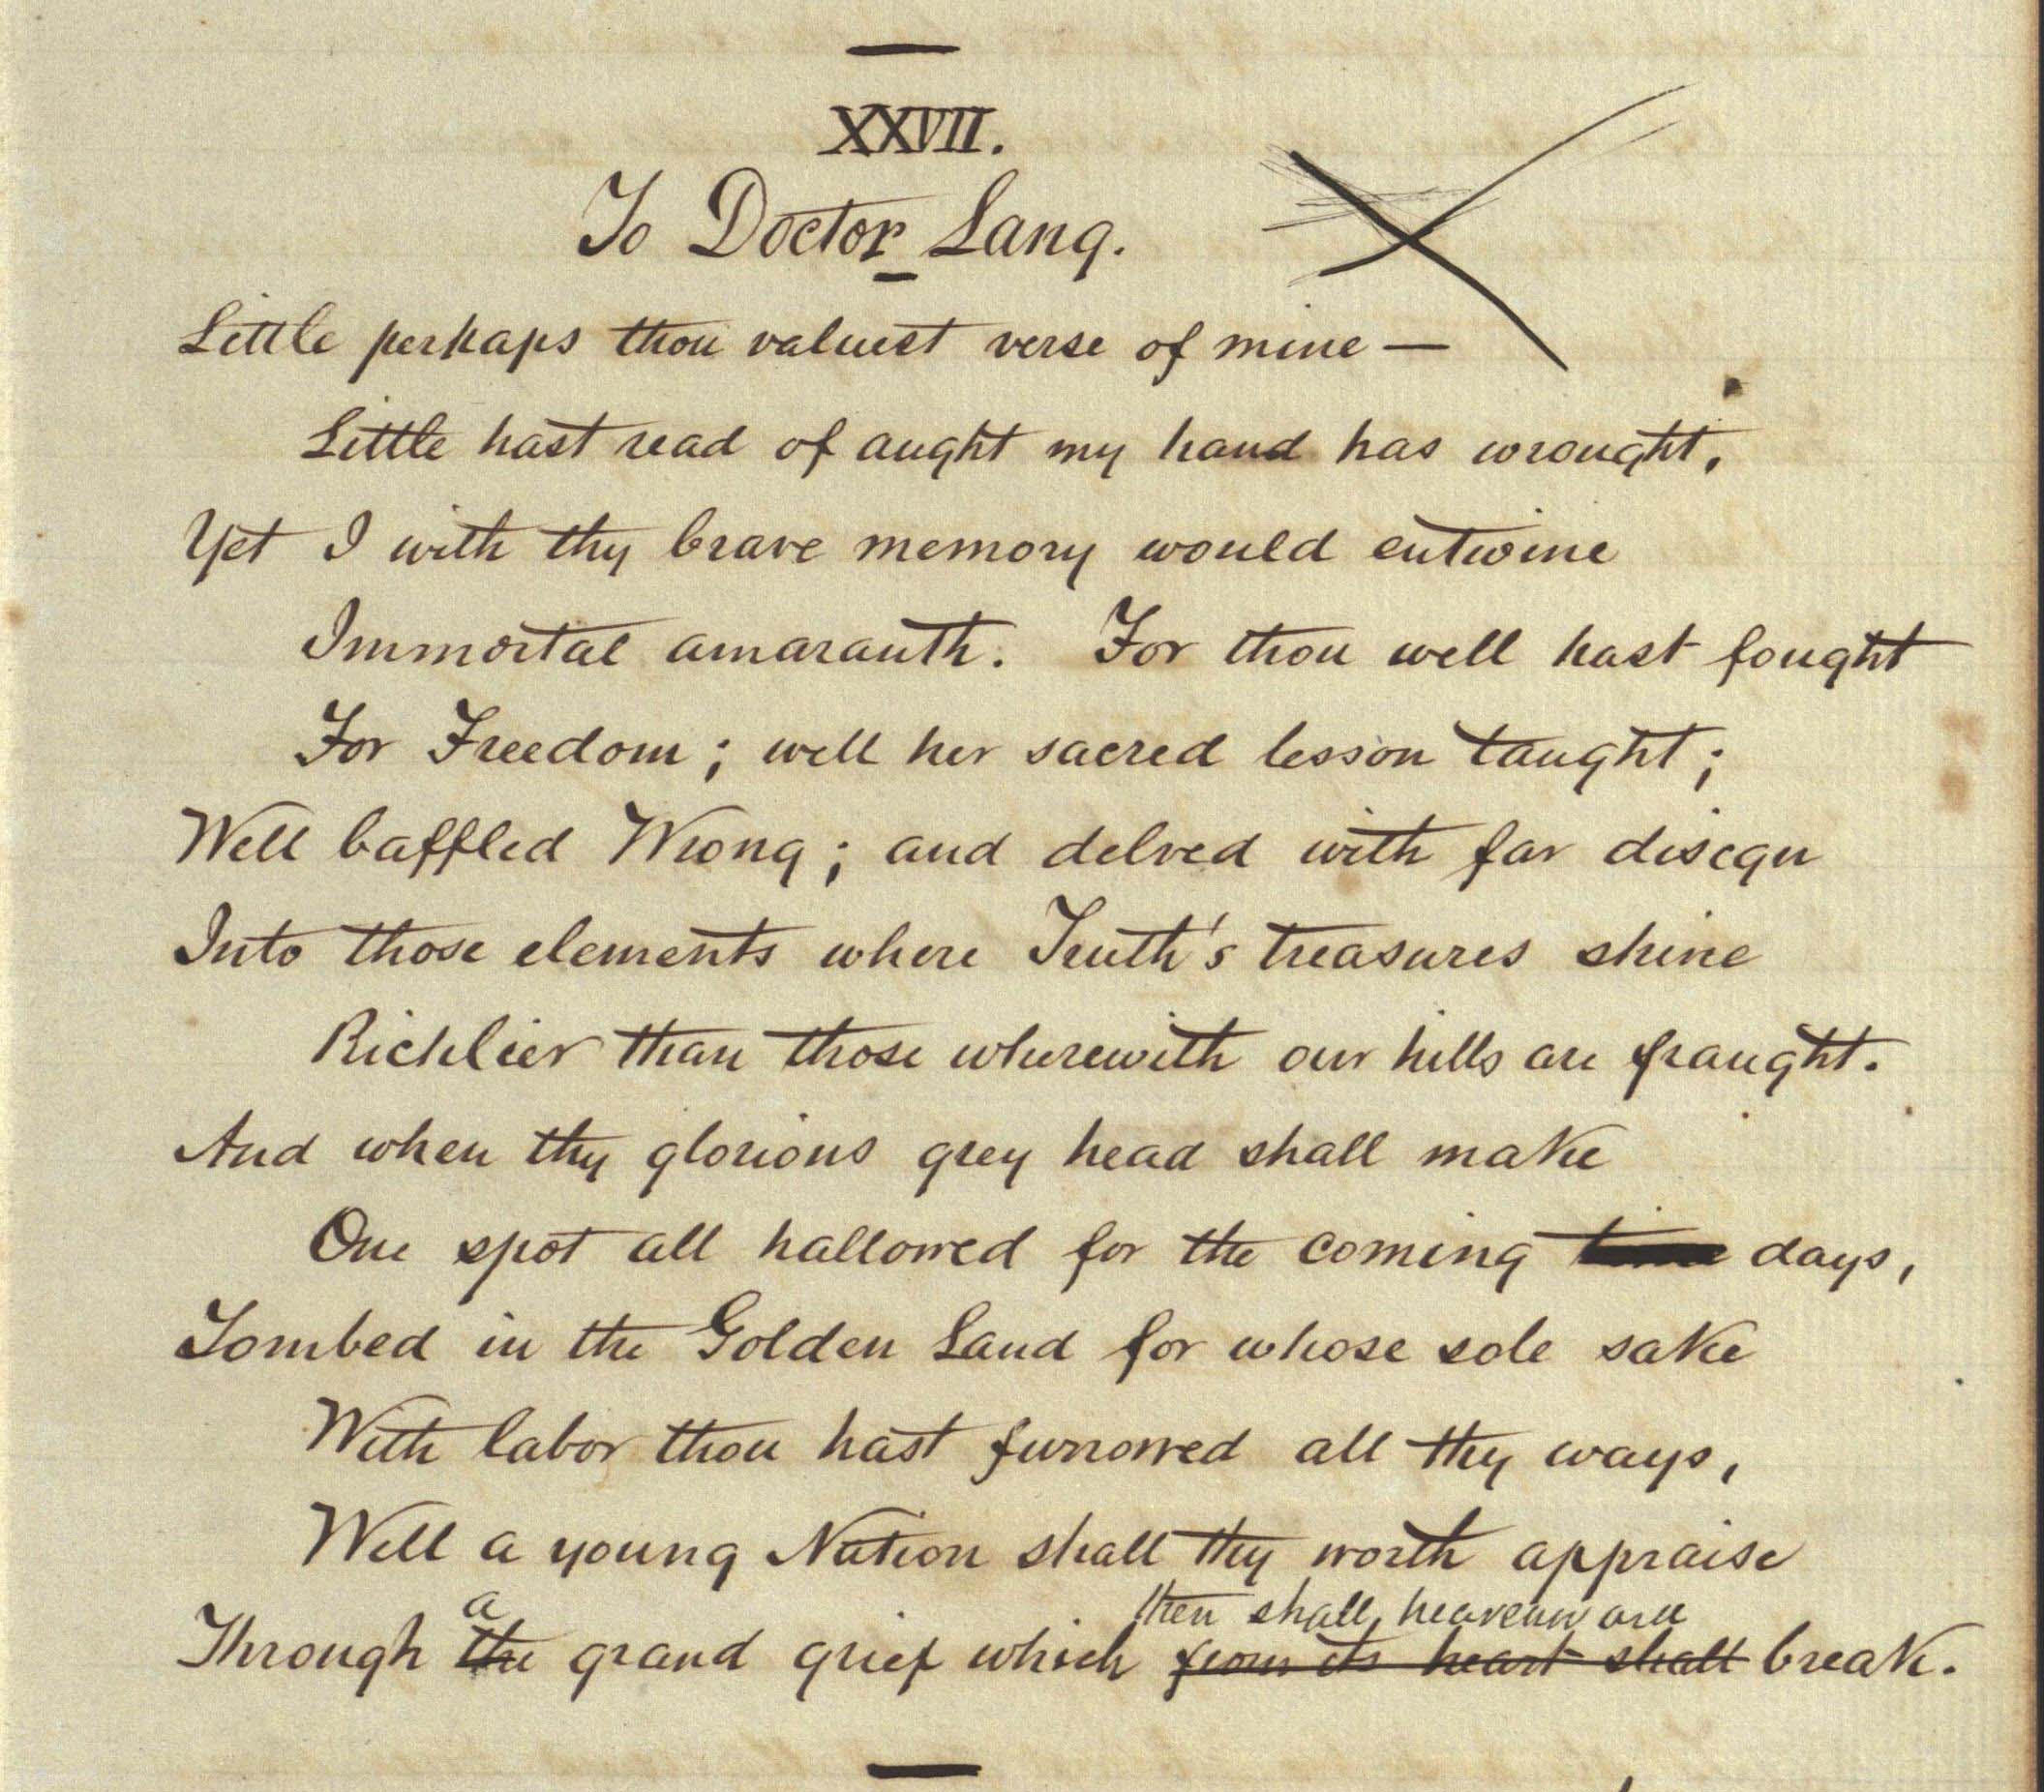 XXVII.
To Doctor Lang.
Little perhaps thou valuest verse of mine —
Little hast read of aught my hand has wrought,
Yet I with thy brave memory would entwine
Immortal amaranth. For thou well hast fought
For Freedom; well her sacred lesson taught;
Well baffled Wrong; and delved with far disegn
Into those elements where Truth's treasures shine
Richlier than those wherewith our hills are fraught.
And when thy glorious grey head shall make
One spot all hallowed for the coming time days,
Tombed in the Golden Land for whose sole sake
With labor thou hast furrowed all thy ways,
Well a young Nation shall thy worth appraise
a then shall heavenward
Through the grand grief which from its heart shall break.